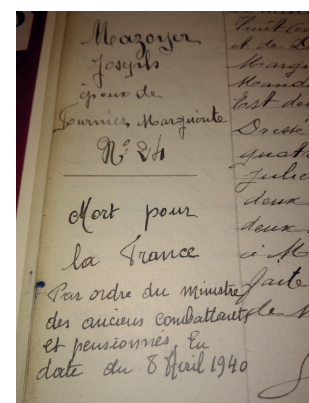 Mazoyer
Joseph
époux de
Fournier Marguerite
N° 24
Mort pour
la France
Par ordre du ministre
des anciens combattants
et pensionnés. En
date du 8 Avril 1940
huit cent
et de D
Margu
Mand
Est de
Dressé
quat
Juille
deux
deux
à M
faite
de M